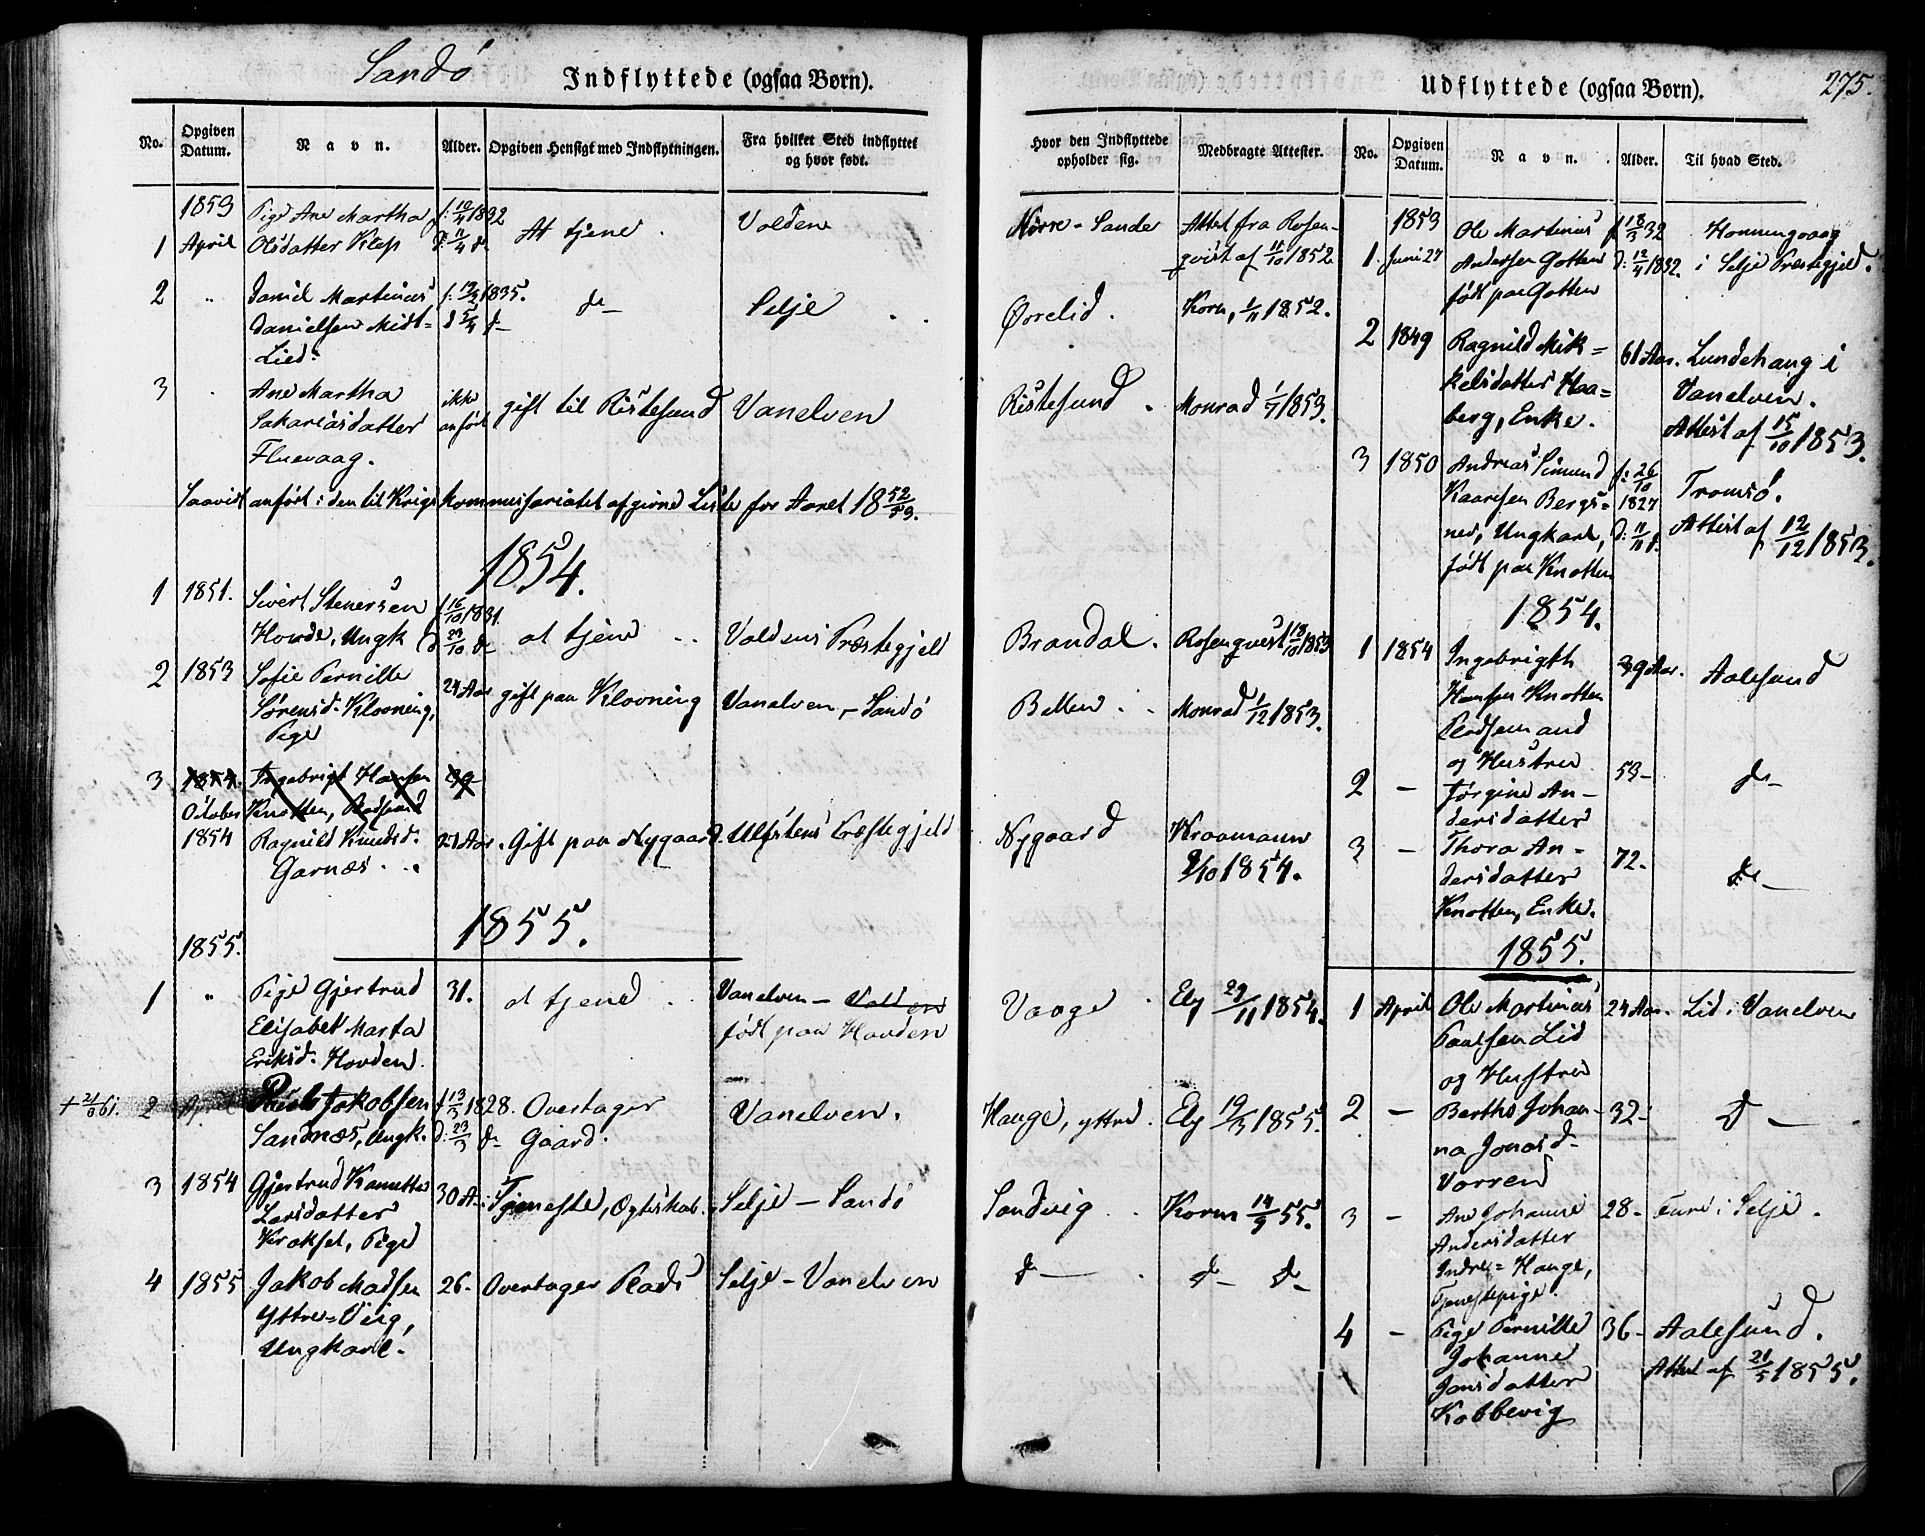 Sandö
Indflyttede (ogsaa Børn).
No.
Opgiven Datum.
Navn.
Alder.
Opgiven Hensigt med Indflytningen.
Fra hvilket Sted indflyttet og hvor født.
Hvor den Indflyttede opholder sig.
Medbragte Attester.
1853
Pige Ane Martha f: 10/4 1832
1 April Olsdatter Klep d: 11/4 do At tjene. Volden Nörre-Sande Attest fra Rosenqvist af 11/10 1852
2 " Daniel Martinus f: 1835.
Danielsen Midt= d 5/4 do do Selje Ørrelid. Korn, 1/11 1852.
Lied.
3 Ane Martha
Sakariasdatter ikke anfört gift til Ristesund Vanelven Ristesund. Monrad 1/7 1853.
Fluevaag.
Saavidt anfört i den til Krigskommissariatet afgivne Liste for Aaret 1852/53.
1854.
1 1851. Sivert Stenersen f 16/10 1831.
Hovde, Ungk d 23/10 do at tjene Voldens Præstegjeld Brandal. Rosenqvist 18/10 1853
2 1853 Sofie Pernille
Sörensd. Klovning, 24 Aar gift paa Klovning Vanelven - Sandö Belten Monrad 1/12 1853.
Pige
3 1854. Ingebrigt Hansen 39
October Knotten, Rodsmand
1854 Ragnild Knudsd. 27 Aar. Gift paa Nygaard. Ulfstens Præstegjeld Nygaard Kraamann
Garnæs 9/10 1854.
1855.
1855.
1 " Pige Gjertrud 31. at tjene Vanelven - Volden Vaage Ely 29/11 1854.
Elisabet Marta født paa Hovden
Eriksd. Hovden.
+ 21/9 61. 2 Ap. Paul Jakobsen f 13/3 1828. Overtager Vanelven. Hauge, yttre. Ely 19/3 1855.
Sandnæs, Ungk. d: 23/3 do Gaard.
3 1854 Gjertrud Kanutte 30 A. Tjeneste, Ægteskab. Selje - Sandö Sandvig Korn 14/9 55.
Larsdatter
Krokset, Pige
4 1855 Jakob Madsen 26- Overtager Plads Selje - Vanelven do do do
Yttre=Vig,
Ungkarl.
Udflyttede (ogsaa Børn).
275.
No.
Opgiven Datum.
Navn.
Alder.
Til hvad Sted.
1853 Ole Martinus f 18/3 32 Honningvaag
1. Juni 27 Andersen Gotten d: 12/4 1832. i Selje Præstegjeld.
født paa Gotten
2 1849 Ragnild Mik= 61 Aar. Lundehaug i
kelsdatter Haa= Vanelven.
berg, Enke. Attest af 15/10 1853.
3 1850 Andreas Simund f: 26/10 1827 Tromsö.
Kaaresen Bergs=
nes, Ungkarl, d: 11/11 do Attest af 12/12 1853.
født paa Knotten
1854.
1 1854 Ingebrigth 39 Aar. Aalesund
Hansen Knotten
Pladsemand
og Hustru
2 - Jörgine An- 53- do
dersdatter
3 - Thora An- 72. do
dersdatter
Knotten, Enke.
1855.
1 April Ole Martinus 24 Aar. Lid i Vanelven
Paulsen Lid
og Hustru
2 - Berthe Johan- 32- do
na Jonasd-
Vorren
3 - Ane Johanne 28- Fure i Selje.
Andersdatter
Indre=Hauge,
Tjenestepige.
4 - Pige Pernille 36- Aalesund.
Johanne
Jonsdatter Attest af 21/5 1855.
Kobbevig